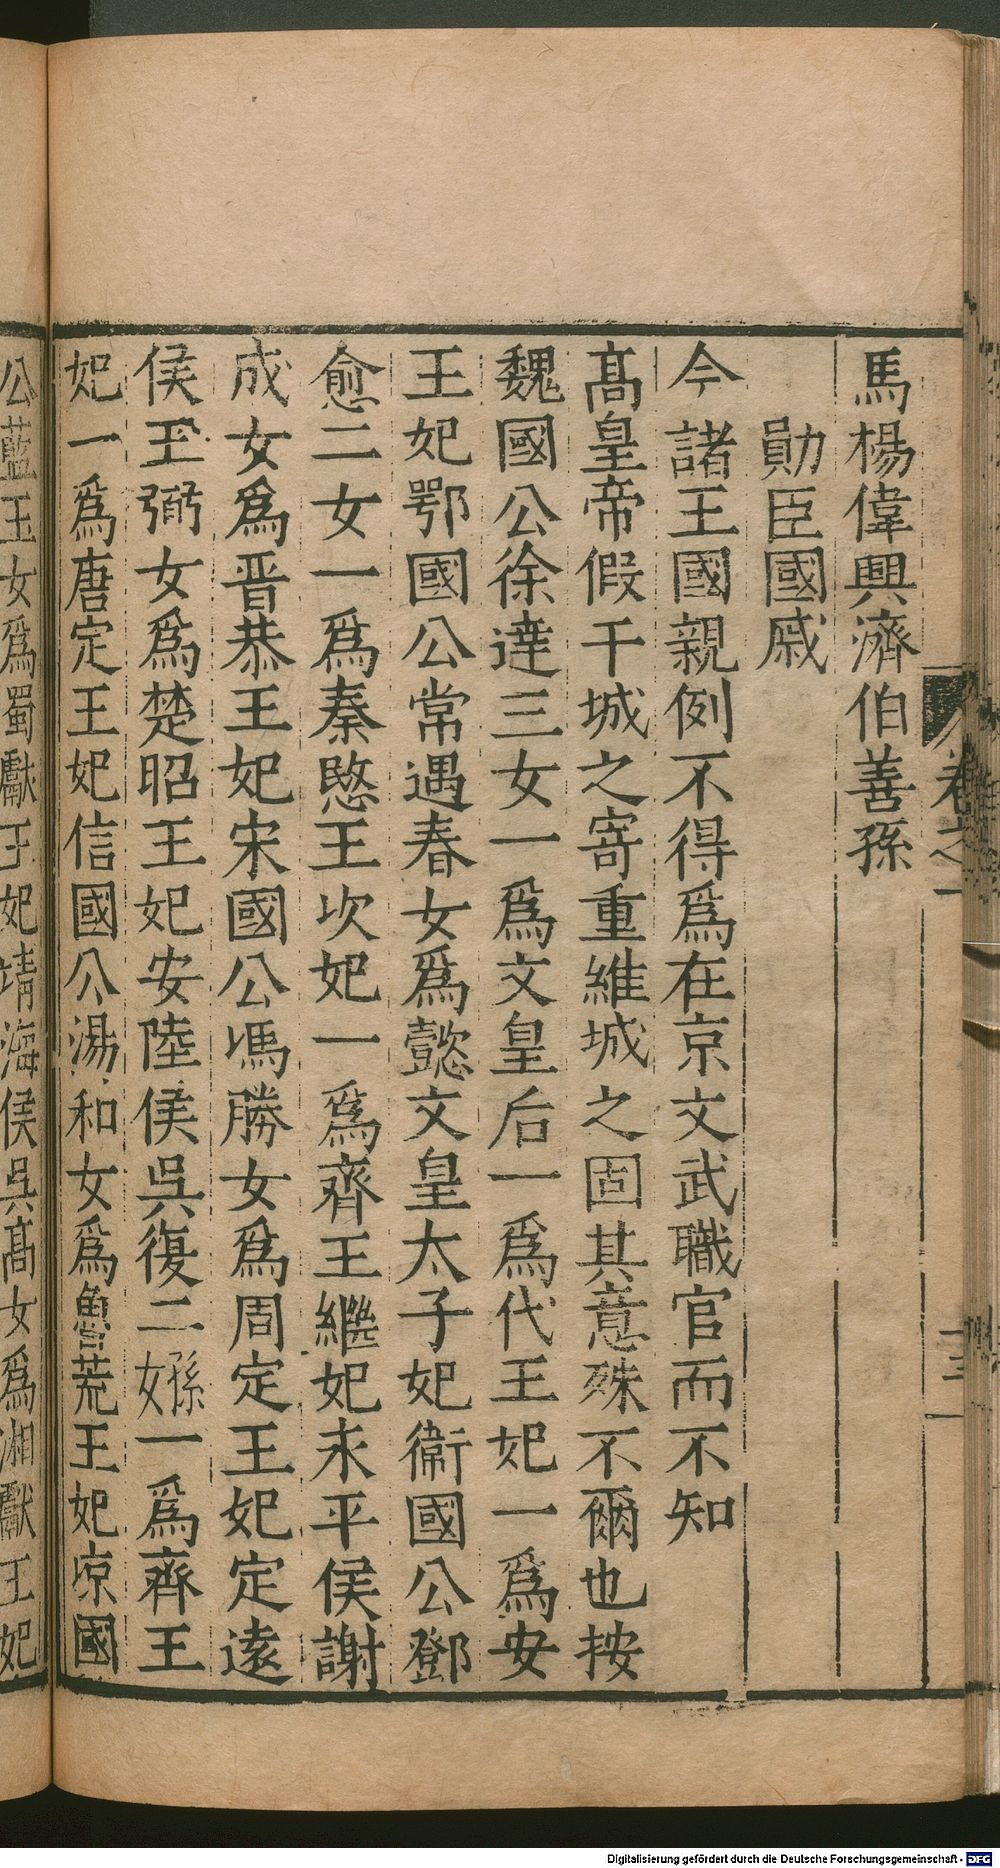 馬楊偉興濟伯善孫
勛臣國戚
今諸王國親例不得爲在京文武職官而不知
髙皇帝假干城之寄重維城之固其意殊不爾也按
魏國公徐達三女一爲文皇后一爲代王妃一爲安
王妃鄂國公常遇春女爲懿文皇太子妃衞國公鄧
愈二女一爲秦愍王次妃一爲齊王繼妃永平侯謝
成女爲晋恭王妃宋國公馮勝女爲周定王妃定遠
侯王弼女爲楚昭王妃安陸侯吳復二女孫一爲齊王
妃一爲唐定王妃信國公湯和女爲魯荒王妃凉國
公藍玉女爲蜀獻王妃靖海侯吳髙女爲湘獻王妃
卷之一
十三
Digitalisierung gefördert durch die Deutsche Forschungsgemeinschaft - DFG